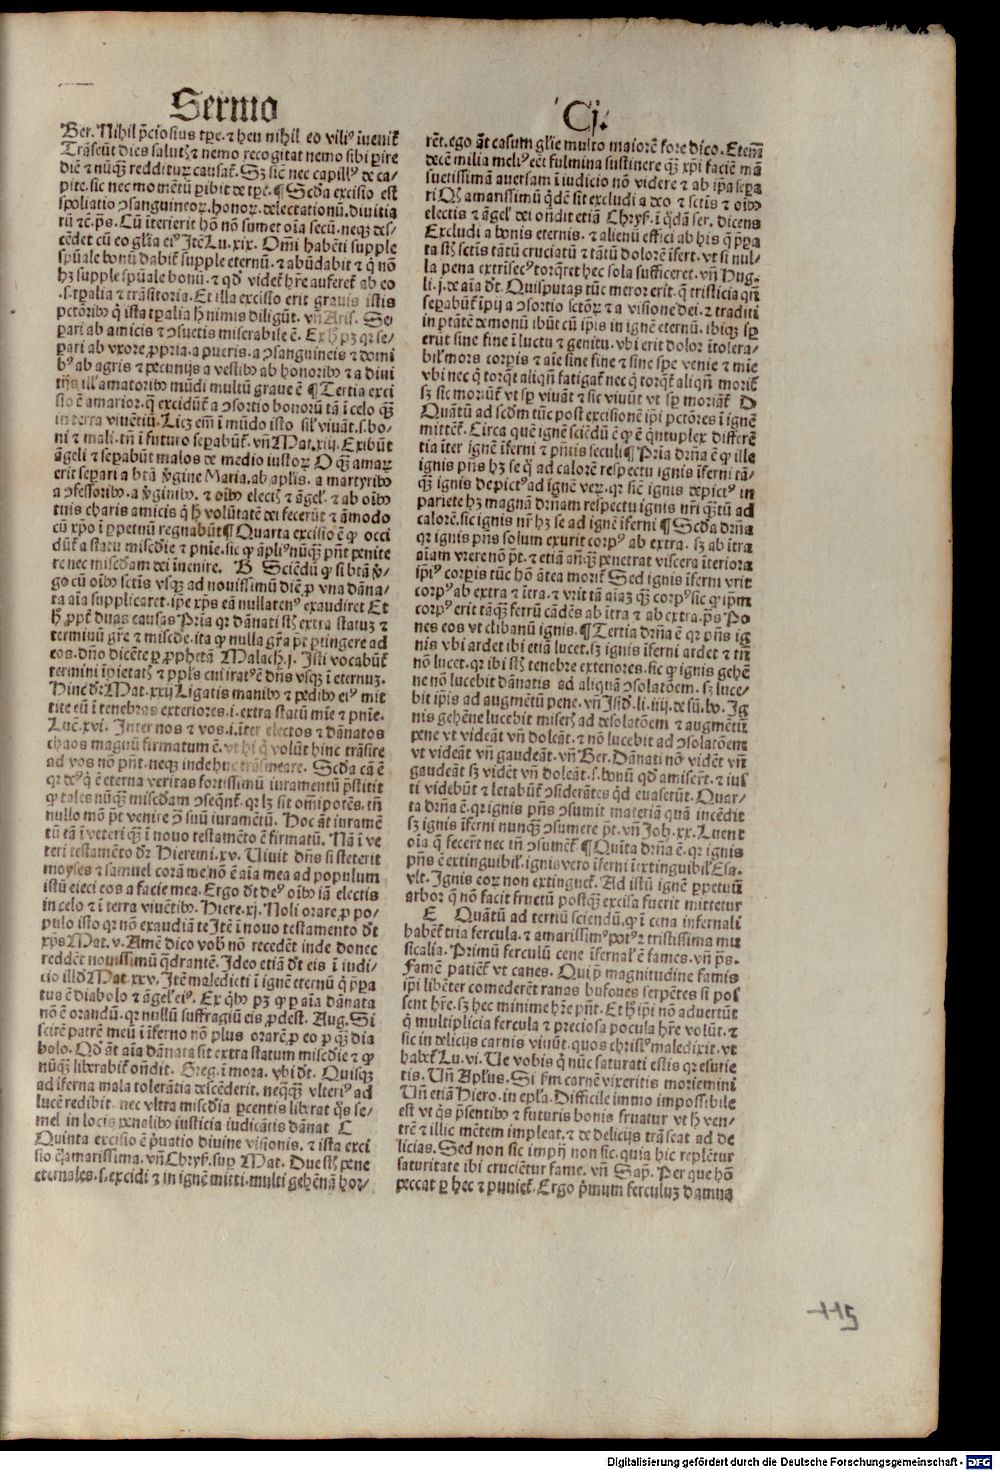 Sermo
Cj.
Ber. Nihil p̄ciosius tp̄e. ⁊ heu nihil eo viliꝰ īuenit̄
Trāseūt dies salutꝭ ⁊ nemo recogitat nemo sibi ꝑire
diē ⁊ nūqꝫ redditurꝫ causat̄. Sꝫ sic̄ nec capillꝰ de ca-
pite. sic nec momētū ꝑibit de tp̄e. ¶ Scd̄a excisio est
spoliatio ↄsanguineoꝝ. honoꝝ. delectationū. diuitia
rū ⁊c̄. p̄s. Cū īterierit hō nō sumet oīa secū. neqꝫ des-
cēdet cū eo gl̄ia eiꝰ Itē Lu. xix. Om̄i habēti supple
spūale bonū dabit̄ supple eternū. ⁊ abūdabit ⁊ q̄ nō
hꝫ supple spūale bonū. ⁊ qd̄ videt̄ hr̄e auferet̄ ab eo
.s. tꝑalia ⁊ trāsitoria. Et illa excisio erit grauis istis
pctōribꝫ q̄ ista tꝑalia hn̄t nimis diligūt. vn̄ Aris. Se
pari ab amicis ⁊ ↄsuetis miserabile ē. Ex h̄ pꝫ qr se-
pari ab vxore ꝓpria. a pueris. a ↄsanguineis ⁊ domi
bꝰ ab agris ⁊ pecunijs a vestibꝫ ab honoribꝫ ⁊ a diui
tijs ill̄ amatoribꝫ mūdi multū graue ē ¶ Tertia exci
sio ē amarior. q̄ excidūt̄ a ↄsortio bonorū tā ī celo qꝫ
in terra viuētiū. Licꝫ em̄ ī mūdo isto sil̄ viuāt .s. bo-
ni ⁊ mali. tn̄ ī futuro sepabūt̄. vn̄ Mat. xiij. Exibūt
āgeli ⁊ sepabūt malos de medio iustoꝝ O qꝫ amaꝝ
erit separi a btā v̄gine Maria. ab apl̄is. a martyribꝫ
a ↄfessoribꝫ. a v̄ginibꝫ. ⁊ oībꝫ electꝭ ⁊ āgel̄. ⁊ ab oībꝫ
tuis charis amicis q̄ h̄ volūtatē dei fecerūt ⁊ āmodo
cū xp̄o ī ꝑpetuū regnabūt ¶ Quarta excisio ē qꝙ occi
dūt̄ a statu misc̄die ⁊ pn̄ie. sic ꝙ āpliꝰ nūqꝫ pn̄t penite
re nec misc̄dam dei īuenire. B Sciēdū ꝙ si btā v̄-
go cū oībꝫ sctīs vsqꝫ ad nouissimū diē ꝓ vna dāna-
ta aīa supplicaret. ip̄e xp̄s eā nullatenꝰ exaudiret Et
h̄ ꝓpt̄ duas causas Pria qr dānati stꝫ extra statuꝫ ⁊
terminū gr̄e ⁊ misc̄de. ita ꝙ nulla gr̄a p̄t ptingere ad
eos. dn̄o dicēte ꝑ ꝓphetā Malach. j. Isti vocabūt̄
termini īpietatꝭ ⁊ ppl̄s cui iratꝰ ē dn̄s vsqꝫ ī eternuꝫ.
Hinc dr̄ Mat. xxij Ligatis manibꝫ ⁊ pedibꝫ eiꝰ mit
tite eū ī tenebras exteriores .i. extra statū mīe ⁊ pn̄ie.
Luc̄. xvi. Inter nos ⁊ vos .i. īter electos ⁊ dānatos
chaos magnū firmatum ē. vt hi q̄ volūt hinc trāsire
ad vos nō pn̄t. neqꝫ inde huc trāsmeare. Scd̄a cā ē
qr deꝰ q̄ ē eterna veritas fortissimū iuramentū p̄stitit
ꝙ tales nūqꝫ misc̄dam ↄseqn̄t̄. qr lꝫ sit om̄ipotēs. tn̄
nullo mō p̄t venire ↄ̄ suū iuramētū. Hoc āt iuramē
tū tā ī veteri qꝫ ī nouo testamēto ē firmatū. Nā ī ve
teri testamēto dr̄ Hieremi. xv. Viuit dn̄s si steterit
moyses ⁊ samuel corā me nō ē aīa mea ad populum
istū eieci eos a facie mea. Ergo dt̄ deꝰ oībꝫ iā electis
in celo ⁊ ī terra viuētibꝫ. Hiere. xj. Noli orare ꝓ po-
pulo isto qr nō exaudiā te Itē ī nouo testamento dt̄
xp̄s Mat. v. Amē dico vob̄ nō recedēt inde donec
reddēt nouissimū q̄drantē. Ideo etiā dt̄ eis ī iudi-
cio illd̄ Mat. xxv. Itē maledicti ī ignē eternū q̄ p̄pa
tus ē diabolo ⁊ āgel̄ eiꝰ. Ex qbꝫ pꝫ ꝙ ꝓ aīa dānata
nō ē orandū. qr nullū suffragiū eis ꝓdest. Aug. Si
scirē patrē meū ī īferno nō plus orarē ꝓ eo ꝙꝫ dia
bolo. Qd̄ āt aīa dānata sit extra statum misc̄die ⁊ ꝙ
nūqꝫ liberabit̄ on̄dit. Greg. ī mora. vbi dt̄. Quisqꝫ
ad īferna mala tolerātia descēderit. neqꝫ vlteriꝰ ad
lucē redibit. nec vltra misc̄dia ꝑcentis librat qꝫ se-
mel in locis penalibꝫ iusticia iudicātis dānat C
Quinta excisio ē p̄uatio diuine visionis. ⁊ ista exci
sio ē amarissima. vn̄ Chrys̄. suꝑ Mat. Due stꝫ pene
eternales .s. excidi ⁊ in ignē mitti. multi gehēnā hor-
rēt. ego āt casum gl̄ie multo maiorē fore dico. Etem̄
decē milia meliꝰ eēt fulmina sustinere qꝫ xp̄i faciē mā
suetissimā auersam ī iudicio nō videre ⁊ ab ip̄a sepa
ri Qꝫ amarissimū q̄dē sit excludi a deo ⁊ sctīs ⁊ oībꝫ
electis ⁊ āgel̄ dei on̄dit etiā Chrys̄. ī q̄dā ser. dicens
Excludi a bonis eternis. ⁊ alienū effici ab his q̄ p̄pa
ta stꝫ sctīs tātū cruciatū ⁊ tātū dolorē īfert. vt si nul-
la pena extrīsecꝰ torq̄ret hec sola sufficeret. vn̄ Hug.
li. j. de aīa dt̄. Quis putas tūc meror erit. q̄ tristicia qn̄
sepabūt̄ īpij a ↄsortio sctōꝝ ⁊ a visione dei. ⁊ traditi
in ptātē demonū ibūt cū ip̄is in ignē eternū. ibiqꝫ sꝑ
erūt sine fine ī luctu ⁊ gemitu. vbi erit dolor ītolera-
bil̄ mors corꝑis ⁊ aīe sine fine ⁊ sine spe venie ⁊ mīe
vbi nec q̄ torq̄t aliqn̄ fatigat̄ nec q̄ torqt̄ aliqn̄ morit̄
sꝫ sic moriūt̄ vt sꝑ viuāt ⁊ sic viuūt vt sꝑ moriāt̄ D
Quātū ad scd̄m tūc post excisionē ip̄i pctōres ī ignē
mittēt̄. Circa quē ignē sciēdū ē ꝙ ē q̄ntuplex differē
tia īter ignē īferni ⁊ pn̄tis seculi ¶ Pria drn̄a ē ꝙ ille
ignis pn̄s hꝫ se q̄si ad calorē respectu ignis īferni tā-
qꝫ ignis depictꝰ ad ignē veꝝ. qr sic̄ ignis depictꝰ in
pariete hꝫ magnā drn̄am respectu ignis nr̄i q̄ntū ad
calorē. sic ignis nr̄ hꝫ se ad ignē īferni ¶ Scd̄a drn̄a
qr ignis pn̄s solum exurit corpꝰ ab extra. sꝫ ab ītra
aīam vrere nō p̄t. ⁊ etiā anꝙꝫ penetrat viscera īteriora
ip̄iꝰ corꝑis tūc hō ātea morit̄ Sed ignis īferni vrit
corpꝰ ab extra ⁊ ītra. ⁊ vrit tā aīaꝫ qꝫ corpꝰ sic ꝙ ip̄m
corpꝰ erit tāqꝫ ferrū cādēs ab ītra ⁊ ab extra. p̄s Po
nes eos vt clibanū ignis. ¶ Tertia drn̄a ē qr pn̄s ig
nis vbi ardet ibi etiā lucet. sꝫ ignis īferni ardet ⁊ tn̄
nō lucet. qr ibi stꝫ tenebre exteriores. sic ꝙ ignis gehē
ne nō lucebit dānatis ad aliquā ↄsolatōem. sꝫ luce-
bit ip̄is ad augmētū pene. vn̄ Isid̄. li. iiij. de sū. bo. Ig
nis gehēne lucebit miserꝭ ad desolatōem ⁊ augmētū
pene vt videāt vn̄ doleāt. ⁊ nō lucebit ad ↄsolatōem
vt videāt vn̄ gaudeāt. vn̄ Ber. Dānati nō vidēt vn̄
gaudeāt sꝫ vidēt vn̄ doleāt .s. bonū qd̄ amiserūt. ⁊ ius
ti videbūt ⁊ letabūt̄ ↄsiderātes q̄d euaserūt. Quar-
ta drn̄a ē. qr ignis pn̄s ↄsumit materiā quā incēdit
sꝫ ignis īferni nunqꝫ ↄsumere p̄t. vn̄ Job. xx. Luent
oīa q̄ fecert̄ nec tn̄ ↄsumēt̄ ¶ Quīta drn̄a ē. qr ignis
pn̄s ē extinguibil̄. ignis vero īferni īextinguibil̄ Esa-
vlt. Ignis eoꝝ non extinguet̄. Ad istū ignē ꝑpetuū
arbor q̄ nō facit fructū postqꝫ excisa fuerit mittetur
E Quātū ad tertiū sciendū. ꝙ ī cena infernali
habēt̄ tria fercula. ⁊ amarissimꝰ potꝰ ⁊ tristissima mu
sicalia. Primū ferculū cene īfernal̄ ē fames. vn̄ p̄s.
Famē patiēt̄ vt canes. Qui p̄ magnitudine famis
ip̄i libēter comederēt ranas bufones serpētes si pos
sent hr̄e. sꝫ hec minime hr̄e pn̄t. Et h̄ ip̄i nō aduertūt
q̄ multiplicia fercula ⁊ preciosa pocula hr̄e volūt. ⁊
sic in delicijs carnis viuūt. quos christꝰ maledixit. vt
habet̄ Lu. vi. Ve vobis q̄ nūc saturati estis qr esurie
tis. Vn̄ Apl̄us. Si s̄m carnē vixeritis moriemini
Vn̄ etiā Hiero. in epl̄a. Difficile immo impossibile
est vt q̄s p̄sentibꝫ ⁊ futuris bonis fruatur vt h̄ ven-
trē ⁊ illic mētem impleat. ⁊ de delicijs trāseat ad de
licias. Sed non sic impij non sic. quia hic replētur
saturitate ibi cruciētur fame. vn̄ Sap̄. Per que hō
peccat ꝑ hec ⁊ puniet̄. Ergo p̄mum ferculuꝫ damna
115
Digitalisierung gefördert durch die Deutsche Forschungsgemeinschaft - DFG